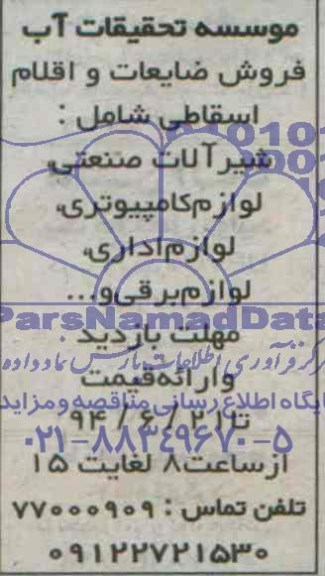 موسسه تحقیقات آب
فروش ضایعات و اقلام
اسقاطی شامل :
شیرآلات صنعتی،
لوازم‌کامپیوتری،
لوازم‌اداری،
لوازم‌برقی‌و...
ParsNamadData
مهلت بازدید
مرکز فرآوری اطلاعات پارس نماد داده
وارائه‌قیمت
پایگاه اطلاع رسانی مناقصه و مزایده
تا ۹۴/۶/۲۱
۰۲۱-۸۸۳۴۹۶۷۰-۵
از ساعت ۸ لغایت ۱۵
تلفن تماس : ۷۷۰۰۰۹۰۹
۰۹۱۲۲۷۲۱۵۳۰